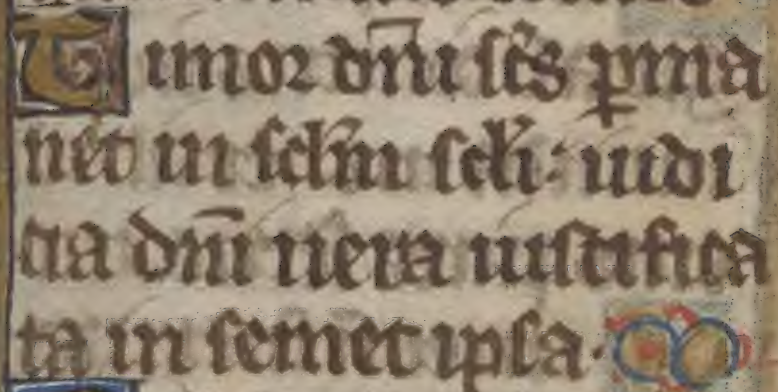 Timor dn̄i sc̄s ꝑma
net in sclm̄ scli᷎: iudi
cia dn̄i uera iustifica
ta in semet ipsa·